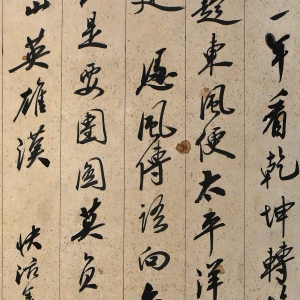 一年看乾坤轉
起東風便太平洋
憑風傳語向
是要團圓莫負
山英雄漢
快活